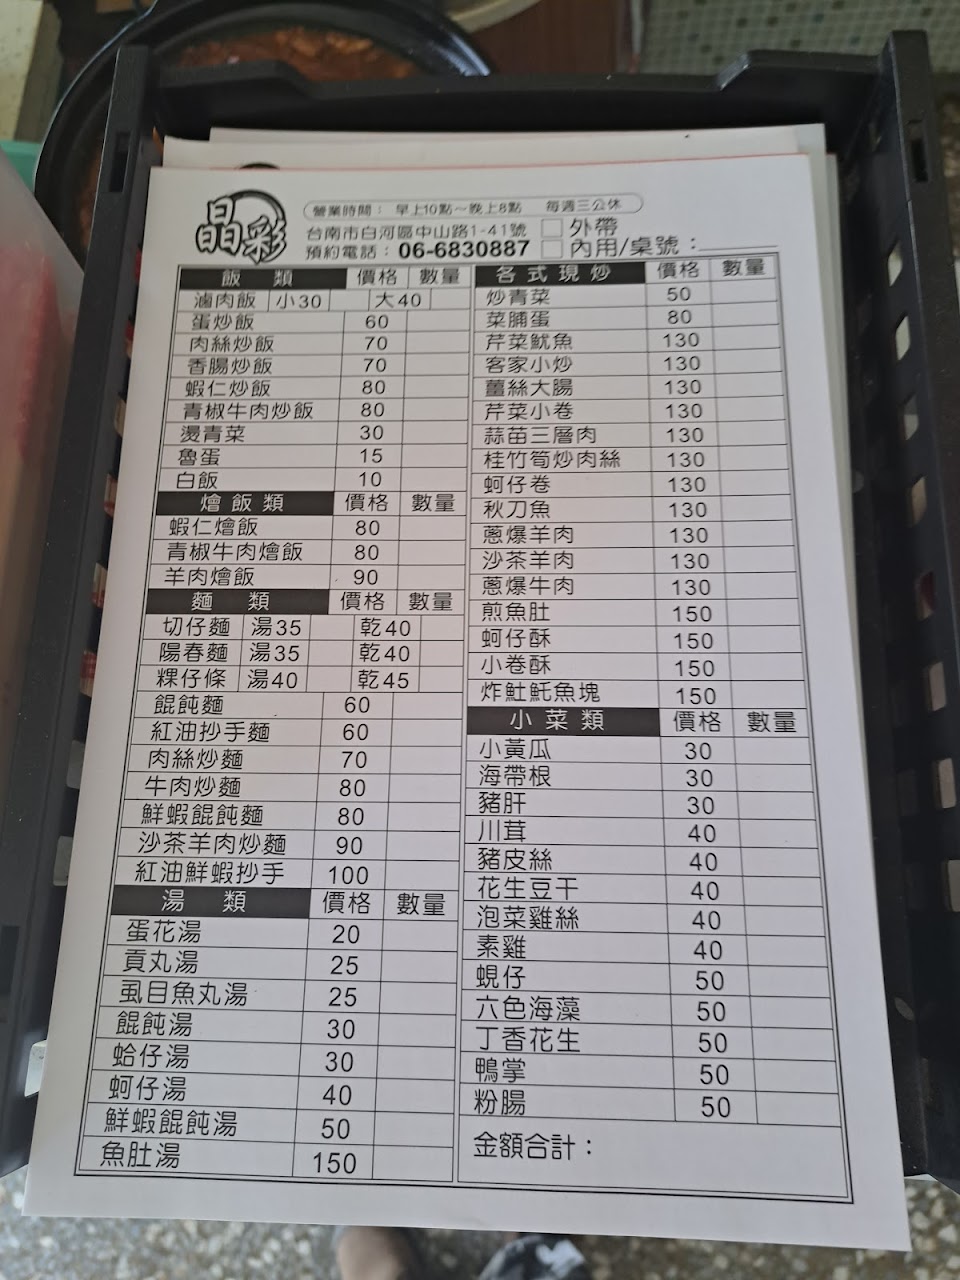 晶彩
營業時間： 早上10點～晚上8點 每週三公休
台南市白河區中山路1-41號
預約電話：06-6830887
外帶
內用/桌號：
飯 類 價格 數量
滷肉飯 小30 大40
蛋炒飯 60
肉絲炒飯 70
香腸炒飯 70
蝦仁炒飯 80
青椒牛肉炒飯 80
燙青菜 30
魯蛋 15
白飯 10
燴飯類 價格 數量
蝦仁燴飯 80
青椒牛肉燴飯 80
羊肉燴飯 90
麵 類 價格 數量
切仔麵 湯35 乾40
陽春麵 湯35 乾40
粿仔條 湯40 乾45
餛飩麵 60
紅油抄手麵 60
肉絲炒麵 70
牛肉炒麵 80
鮮蝦餛飩麵 80
沙茶羊肉炒麵 90
紅油鮮蝦抄手 100
湯 類 價格 數量
蛋花湯 20
貢丸湯 25
虱目魚丸湯 25
餛飩湯 30
蛤仔湯 30
蚵仔湯 40
鮮蝦餛飩湯 50
魚肚湯 150
各式現炒 價格 數量
炒青菜 50
菜脯蛋 80
芹菜魷魚 130
客家小炒 130
薑絲大腸 130
芹菜小卷 130
蒜苗三層肉 130
桂竹筍炒肉絲 130
蚵仔卷 130
秋刀魚 130
蔥爆羊肉 130
沙茶羊肉 130
蔥爆牛肉 130
煎魚肚 150
蚵仔酥 150
小卷酥 150
炸𩵚魠魚塊 150
小菜類 價格 數量
小黃瓜 30
海帶根 30
豬肝 30
川茸 40
豬皮絲 40
花生豆干 40
泡菜雞絲 40
素雞 40
蜆仔 50
六色海藻 50
丁香花生 50
鴨掌 50
粉腸 50
金額合計：